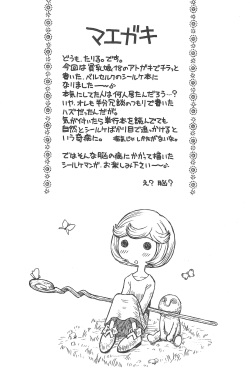 マエガキ
どうも、たりるっです。
今回は貧乳娘18のアトガキでチラッと
書いた、ベルセルクのシールケ本に
なりました――♪
本気にしてた人は何人居たんだろう…?
いや、オレも半分冗談のつもりで書いた
ハズだったんだが。
気が付いたら単行本を読んでても
自然とシールケばかり目で追っかけると
いう奇病に。
ではそんな脳の病にかかって描いた
シールケマンガ、お楽しみ下さい――♪
え? 脳?